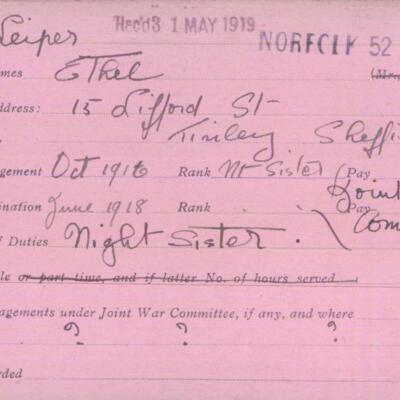 Leiper Rec'd 3 1 MAY 1919 NORFOLK 52
mes Ethel (Mr
ddress: 15 Lifford St
Tinsley Sheffi
gement Oct 1916 Rank Nt Sister (Pay
Joint
ination June 1918 Rank . . Pay
Com
f Duties Night Sister.
le or part time, and if latter No. of hours served
agements under Joint War Committee, if any, and where
? ? ?
rded